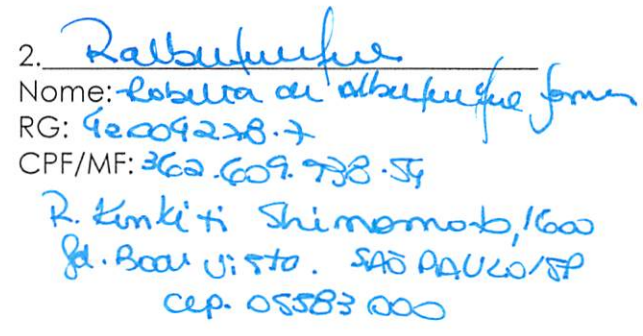 2. Ralbuquerque
Nome: Roberta de Albuquerque
RG: 42004278.7
CPF/MF: 362.609.738.54
R. Kinkiti Shimomoto, 1600
Jd. Boa Vista. SÃO PAULO/SP
CEP. 05583 000